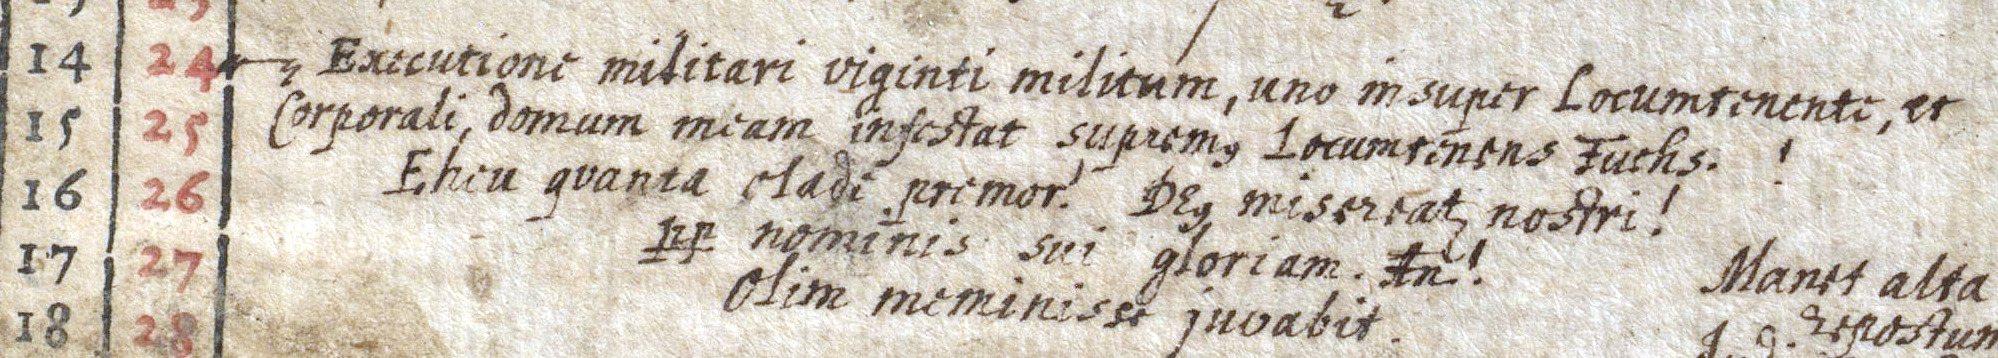 14 24 Executione militari viginti militum, uno insuper Locumtenente, et
15 25 Corporali, domum meam infestat supremꝰ Locumtenens Fuchs. !
16 26 Eheu qvanta clade premor! DEꝰ misereatꝛ nostri!
17 27 ꝓp nominis sui gloriam. An!
18 28 Olim meminisse juvabit.
Manet alta
repostum